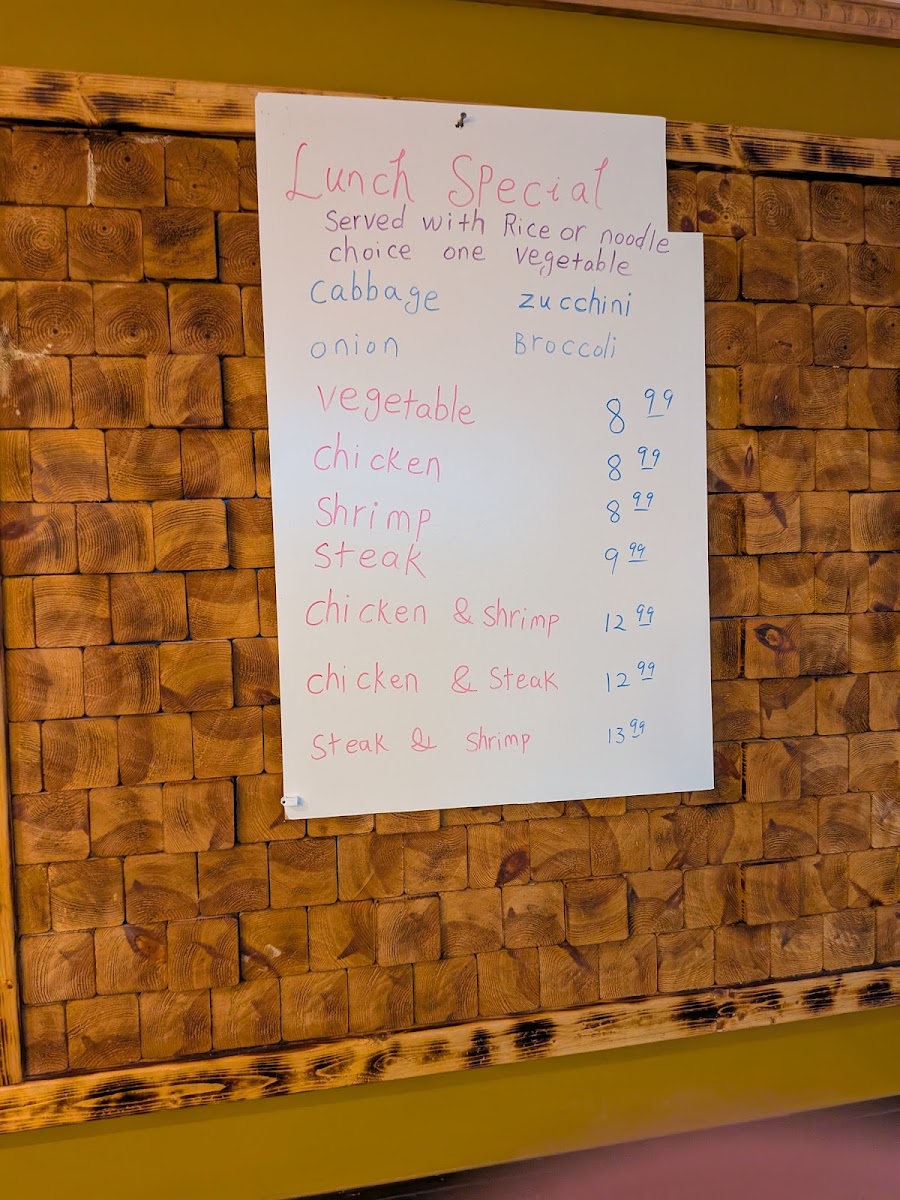 Lunch Special
Served with Rice or noodle
choice one vegetable
Cabbage zucchini
onion Broccoli
vegetable 8 99
chicken 8 99
Shrimp 8 99
Steak 9 99
chicken & shrimp 12 99
chicken & Steak 12 99
Steak & shrimp 13 99